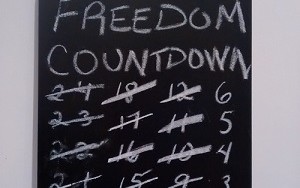 FREEDOM
COUNTDOWN
24 18 12 6
23 17 11 5
22 16 10 4
21 15 9 3